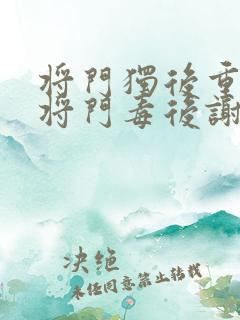 将門獨後重
将門毒後謝
决绝
未经同意禁止转载